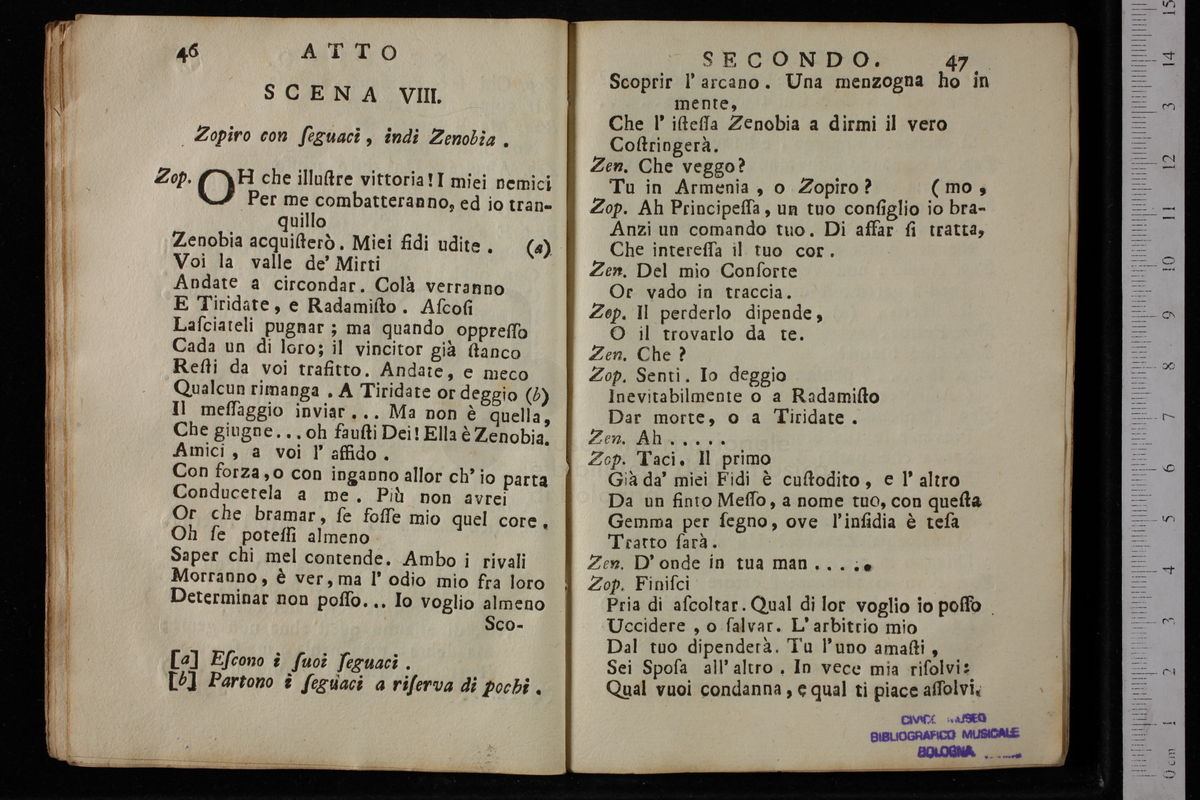 46 ATTO
SCENA VIII.
Zopiro con ſeguaci, indi Zenobia.
Zop. OH che illuſtre vittoria! I miei nemici
Per me combatteranno, ed io tran-
quillo
Zenobia acquiſterò. Miei fidi udite. (a)
Voi la valle de' Mirti
Andate a circondar. Colà verranno
E Tiridate, e Radamiſto. Aſcoſi
Laſciateli pugnar; ma quando oppreſſo
Cada un di loro; il vincitor già ſtanco
Reſti da voi trafitto. Andate, e meco
Qualcun rimanga. A Tiridate or deggio (b)
Il meſſaggio inviar... Ma non è quella,
Che giugne... oh fauſti Dei! Ella è Zenobia.
Amici, a voi l' affido.
Con forza, o con inganno allor ch' io parta
Conducetela a me. Più non avrei
Or che bramar, ſe foſſe mio quel core.
Oh ſe poteſſi almeno
Saper chi mel contende. Ambo i rivali
Morranno, è ver, ma l' odio mio fra loro
Determinar non poſſo... Io voglio almeno
Sco-
[a] Eſcono i ſuoi ſeguaci.
[b] Partono i ſeguaci a riſerva di pochi.
SECONDO. 47
Scoprir l' arcano. Una menzogna ho in
mente,
Che l' iſteſſa Zenobia a dirmi il vero
Coſtringerà.
Zen. Che veggo?
Tu in Armenia, o Zopiro? (mo,
Zop. Ah Principeſſa, un tuo conſiglio io bra-
Anzi un comando tuo. Di affar ſi tratta,
Che intereſſa il tuo cor.
Zen. Del mio Conſorte
Or vado in traccia.
Zop. Il perderlo dipende,
O il trovarlo da te.
Zen. Che?
Zop. Senti. Io deggio
Inevitabilmente o a Radamiſto
Dar morte, o a Tiridate.
Zen. Ah.....
Zop. Taci. Il primo
Già da' miei Fidi è cuſtodito, e l' altro
Da un finto Meſſo, a nome tuo, con queſta
Gemma per ſegno, ove l'inſidia è teſa
Tratto ſarà.
Zen. D' onde in tua man.....
Zop. Finiſci
Pria di aſcoltar. Qual di lor voglio io poſſo
Uccidere, o ſalvar. L' arbitrio mio
Dal tuo dipenderà. Tu l'uno amaſti,
Sei Spoſa all' altro. In vece mia riſolvi:
Qual vuoi condanna, e qual ti piace aſſolvi.
CIVICO MUSEO
BIBLIOGRAFICO MUSICALE
BOLOGNA
0 cm 1 2 3 4 5 6 7 8 9 10 11 12 13 14 15